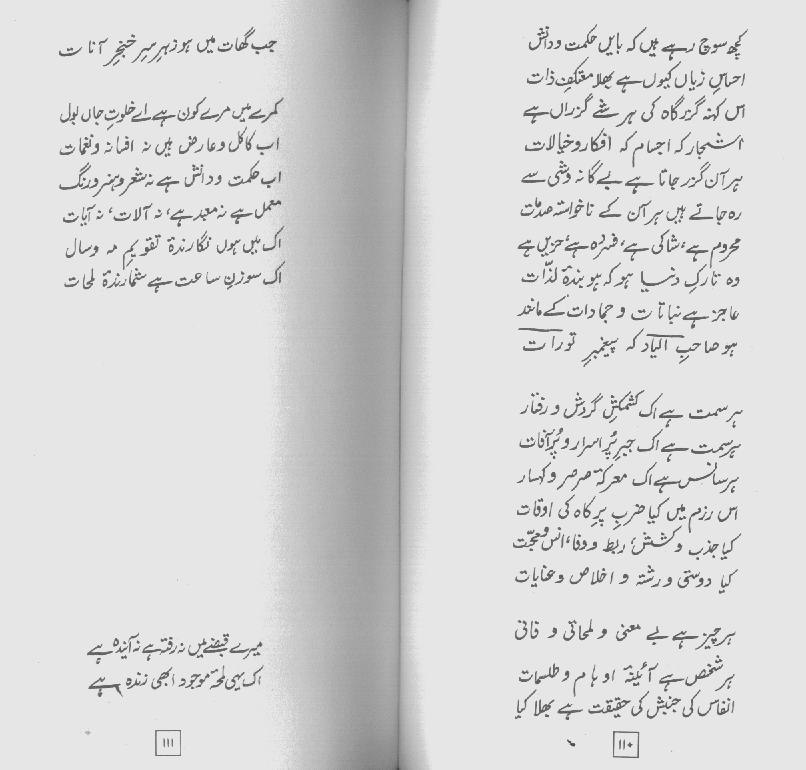 کچھ سوچ رہے ہیں کہ بایں حکمت و دانش
احساسِ زیاں کیوں ہے بھلا معتکفِ ذات
اس کہنہ گزر گاہ کی ہر شے گزراں ہے
اشجار کہ اجسام کہ افکار و خیالات
ہر آن گزر جاتا ہے بے گانہ وشی سے
رہ جاتے ہیں ہر آن کے ناخواستہ صدمات
محروم ہے، شاکی ہے، فسردہ ہے، حزیں ہے
وہ تارکِ دنیا ہو کہ ہو بندۂ لذّات
عاجز ہے نباتات و جمادات کے مانند
ہو صاحبِ الیاد کہ پیغمبرِ تورات
ہر سمت ہے اک کشمکشِ گردش و رفتار
ہر سمت ہے اک جبرِ پُر اسرار و پُر آفات
ہر سانس ہے اک معرکۂ صرصر و کہسار
اس رزم میں کیا ضربِ پرِ کاہ کی اوقات
کیا جذب و کشش، ربط و وفا، انس و محبّت
کیا دوستی و رشتہ و اخلاص و عنایات
ہر چیز ہے بے معنی و لمحاتی و فانی
ہر شخص ہے آئینۂ اوہام و طلسمات
انفاس کی جنبش کی حقیقت ہے بھلا کیا
۱۱۰
جب گھات میں ہو زہر سرِ خنجرِ آنات
کمرے میں مرے کون ہے اے خلوتِ جاں بول
اب کاکل و عارض ہیں نہ افسانہ و نغمات
اب حکمت و دانش ہے نہ شعر و ہنر و رنگ
معمل ہے نہ معبد ہے، نہ آلات، نہ آیات
اک میں ہوں نگارندۂ تقویمِ مہ و سال
اک سوزنِ ساعت ہے شمارندۂ لمحات
میرے قبضے میں نہ رفتہ ہے نہ آیندہ ہے
اک یہی لمحۂ موجود ابھی زندہ ہے
۱۱۱